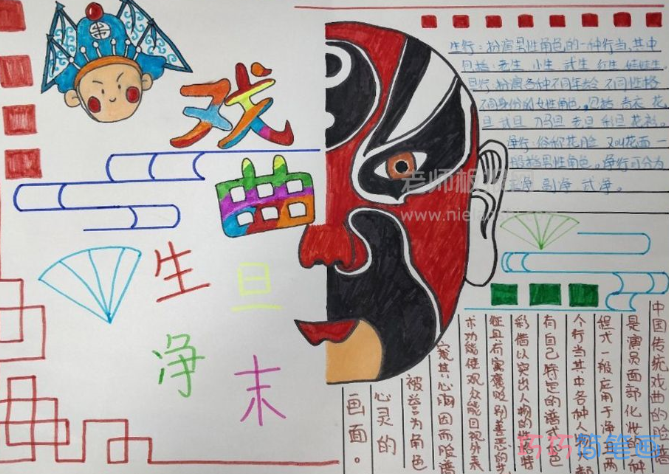 戏
曲
生
旦
净
末
生行：扮演男性角色的一种行当，其中
包括：老生 小生 武生 红生 娃娃生
旦行：扮演各种不同年龄 不同性格
不同身份的女性角色，包括 青衣 花
旦 武旦 刀马旦 老旦 彩旦 花衫。
净行：俗称花脸 又叫花面 一
男性角色。净行可分为
正净 副净 武净。
中国传统戏曲的脸谱
是演员面部化妆的一种
程式 一般应用于净丑两
个行当其中各种人物
有自己特定的谱式
彩借以突出人物的性格特
征具有寓褒贬别善恶的艺
术功能使观众能目视外表
窥其心胸因而脸谱
被誉为角色
心灵的
画面。
老师板
www.nie
巧巧简笔画